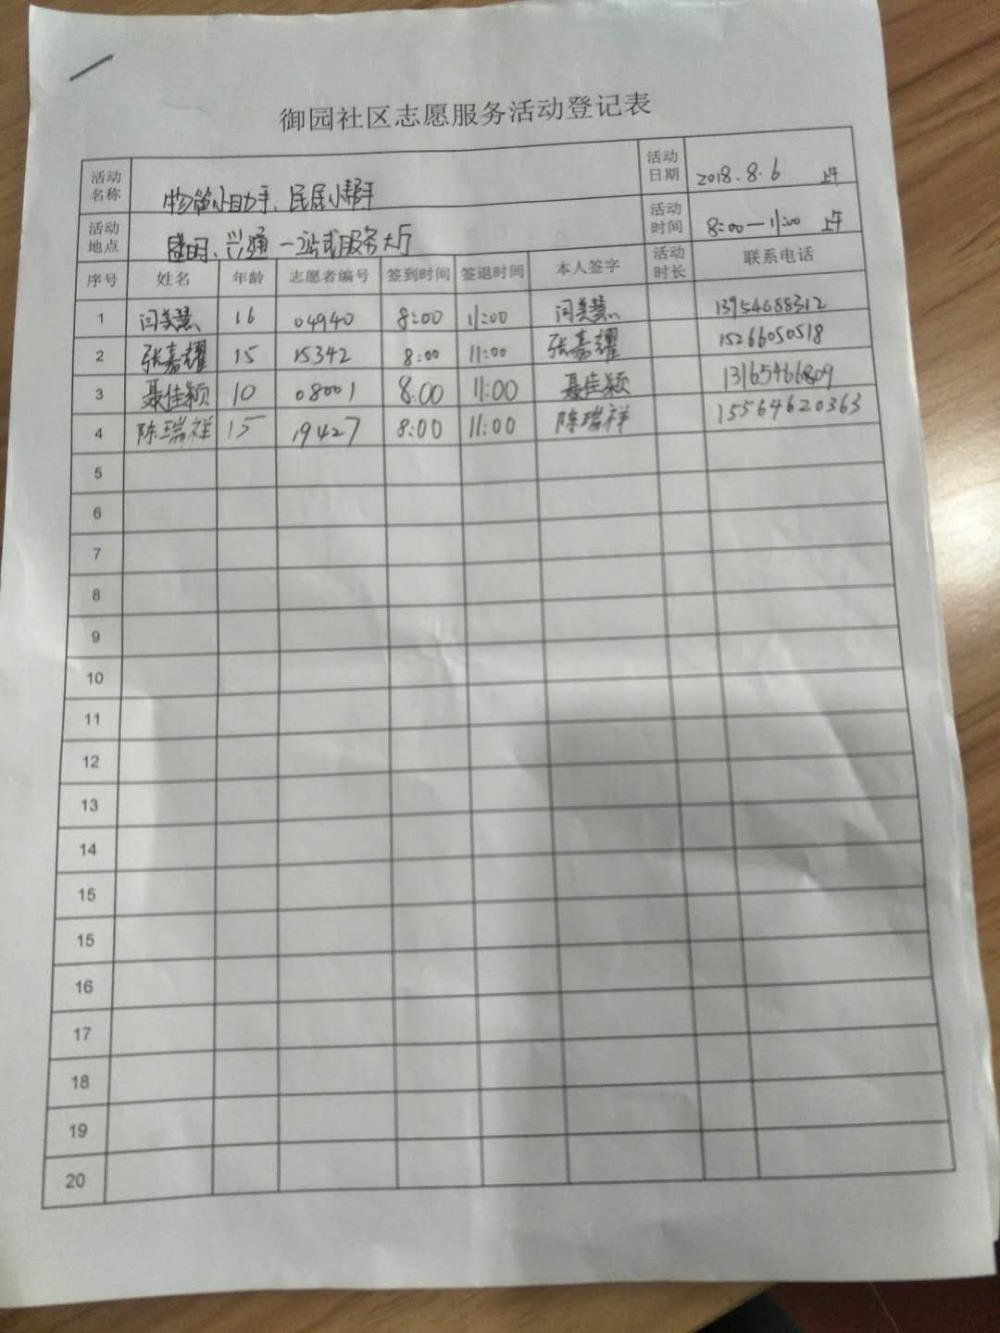 御园社区志愿服务活动登记表
活动名称 物管小助手、民居小帮手 活动日期 2018.8.6 上午
活动地点 兴通一站式服务大厅 活动时间 8:00—11:00 上午
序号 姓名 年龄 志愿者编号 签到时间 签退时间 本人签字 活动时长 联系电话
1 闫美慧 16 04940 8:00 11:00 闫美慧 13954688312
2 张嘉耀 15 15342 8:00 11:00 张嘉耀 15266050518
3 聂佳颖 10 08001 8:00 11:00 聂佳颖 13165466809
4 陈瑞祥 15 19427 8:00 11:00 陈瑞祥 15564620363
5
6
7
8
9
10
11
12
13
14
15
15
16
17
18
19
20